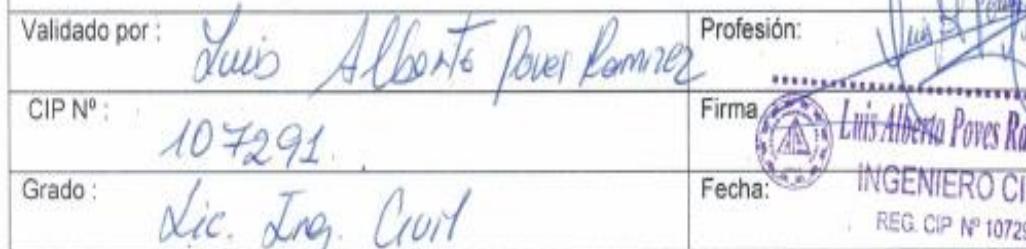 Validado por : Luis Alberto Poves Ramirez
Profesión:
CIP Nº : 107291.
Firma
Luis Alberto Poves Ra
INGENIERO CI
REG. CIP Nº 10729
Grado : Lic. Ing. Civil
Fecha: